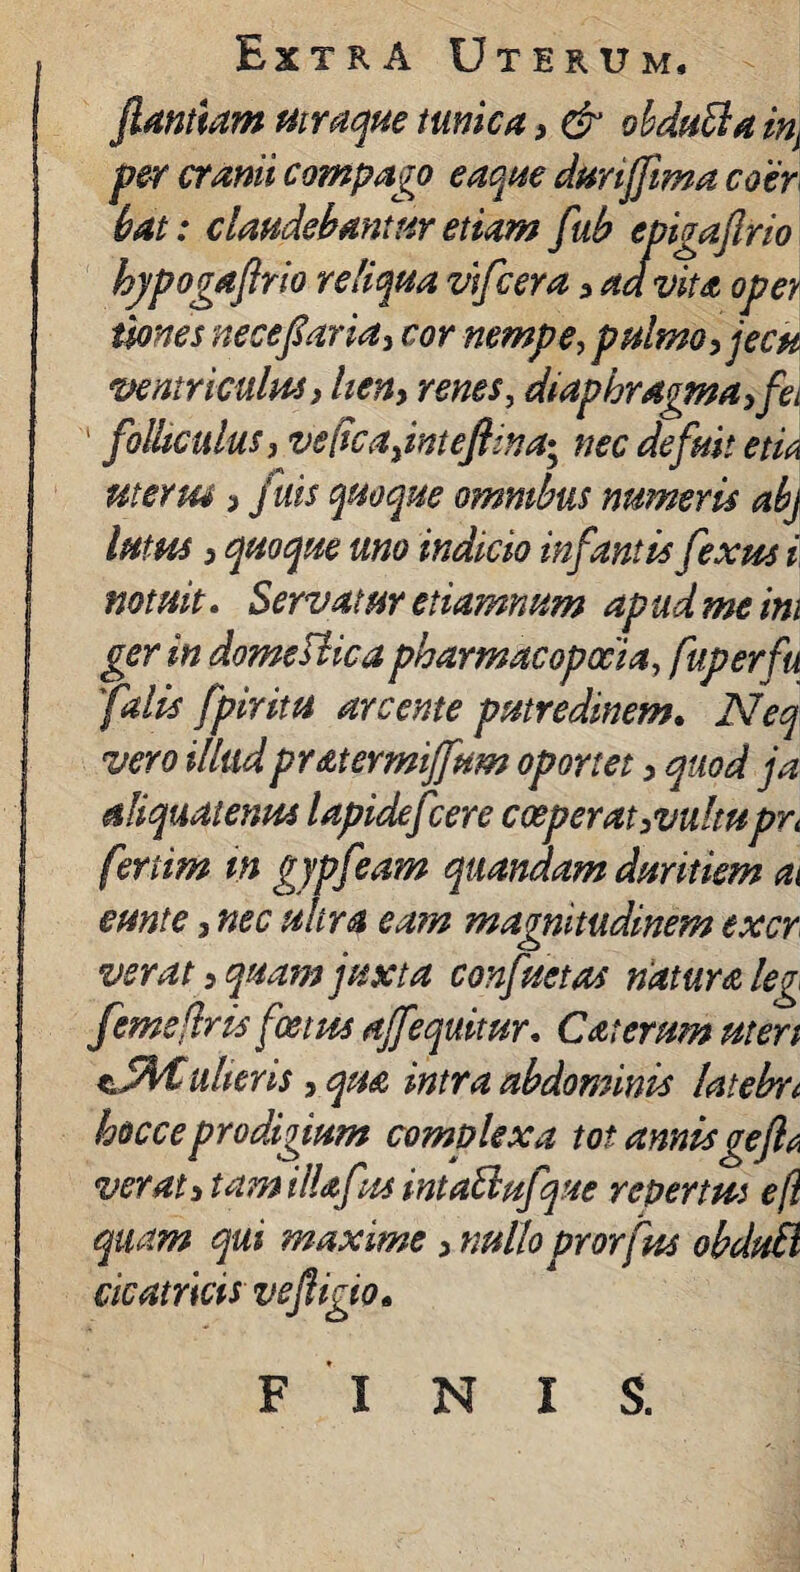 EXTRA UTERUM.
ſtantiam utraque tunica, & obducta inſ
per cranii compago eaque duriſſima coër
bat: claudebantur etiam ſub epigaſtrio
hypogaſtrio reliqua viſcera, ad vitæ oper
tiones neceſſaria, cor nempe, pulmo, jecu
ventriculus, lien, renes, diaphragma, fel
folliculus, veſica, inteſtina; nec defuit etia
uterus, ſuis quoque omnibus numeris abſ
lutus, quoque uno indicio infantis ſexus i
notuit. Servatur etiamnum apud me int
ger in domeſtica pharmacopœia, ſuperfu
ſalis ſpiritu arcente putredinem. Neq
vero illud prætermiſſum oportet, quod ja
aliquatenus lapideſcere cœperat, vultu pr
ſertim in gypſeam quandam duritiem a
eunte, nec ultra eam magnitudinem excr
verat, quam juxta conſuetas naturæ leg
ſemeſtris fœtus aſſequitur. Cæterum uteri
Mulieris, quæ intra abdominis latebr
hocce prodigium complexa tot annis geſta
verat, tam illæſus intactuſque repertus eſt
quam qui maxime, nullo prorſus obduct
cicatricis veſtigio.
FINIS.